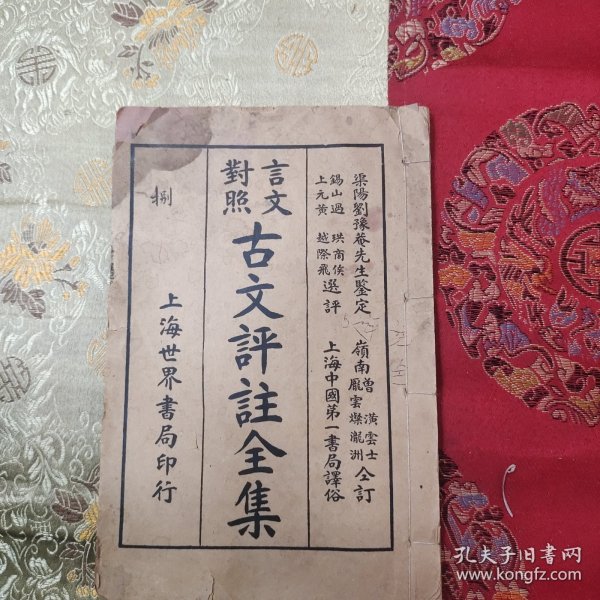 渠陽劉豫菴先生鑒定
錫山過 珙商侯
上元黃 越際飛
選評
嶺南
曾 潢雲士
龎雲燦瀧洲
仝訂
上海中國第一書局譯俗
言文
對照
古文評註全集
捌
上海世界書局印行
孔夫子旧书网
www.kongfz.com